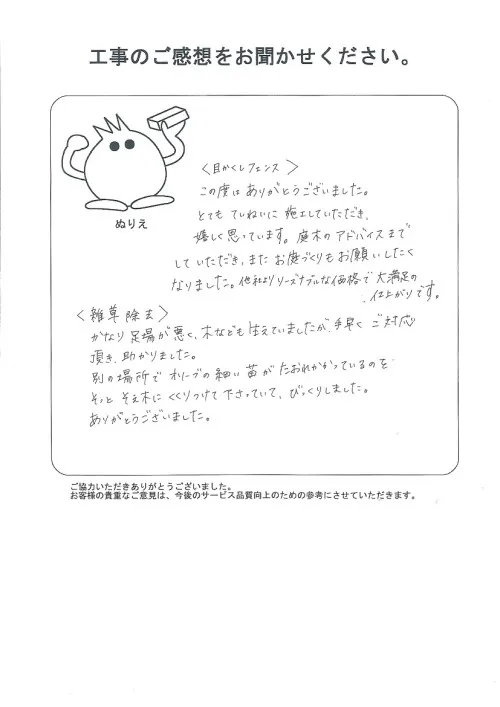 工事のご感想をお聞かせください。
ぬりえ
〈目かくしフェンス〉
この度はありがとうございました。
とても ていねいに 施工していただき、
嬉しく思っています。庭木のアドバイスまで
して いただき、また お庭づくりも お願いしたく
なりました。他社よりリーズナブルな価格で 大満足の
仕上がりです。
〈雑草除去〉
かなり 足場が悪く、木なども 生えていましたが、手早く ご対応
頂き、助かりました。
別の場所で オリーブの細い苗が たおれかかっているのを
そっと そえ木に くくりつけて 下さっていて、びっくりしました。
ありがとうございました。
ご協力いただきありがとうございました。
お客様の貴重なご意見は、今後のサービス品質向上のための参考にさせていただきます。